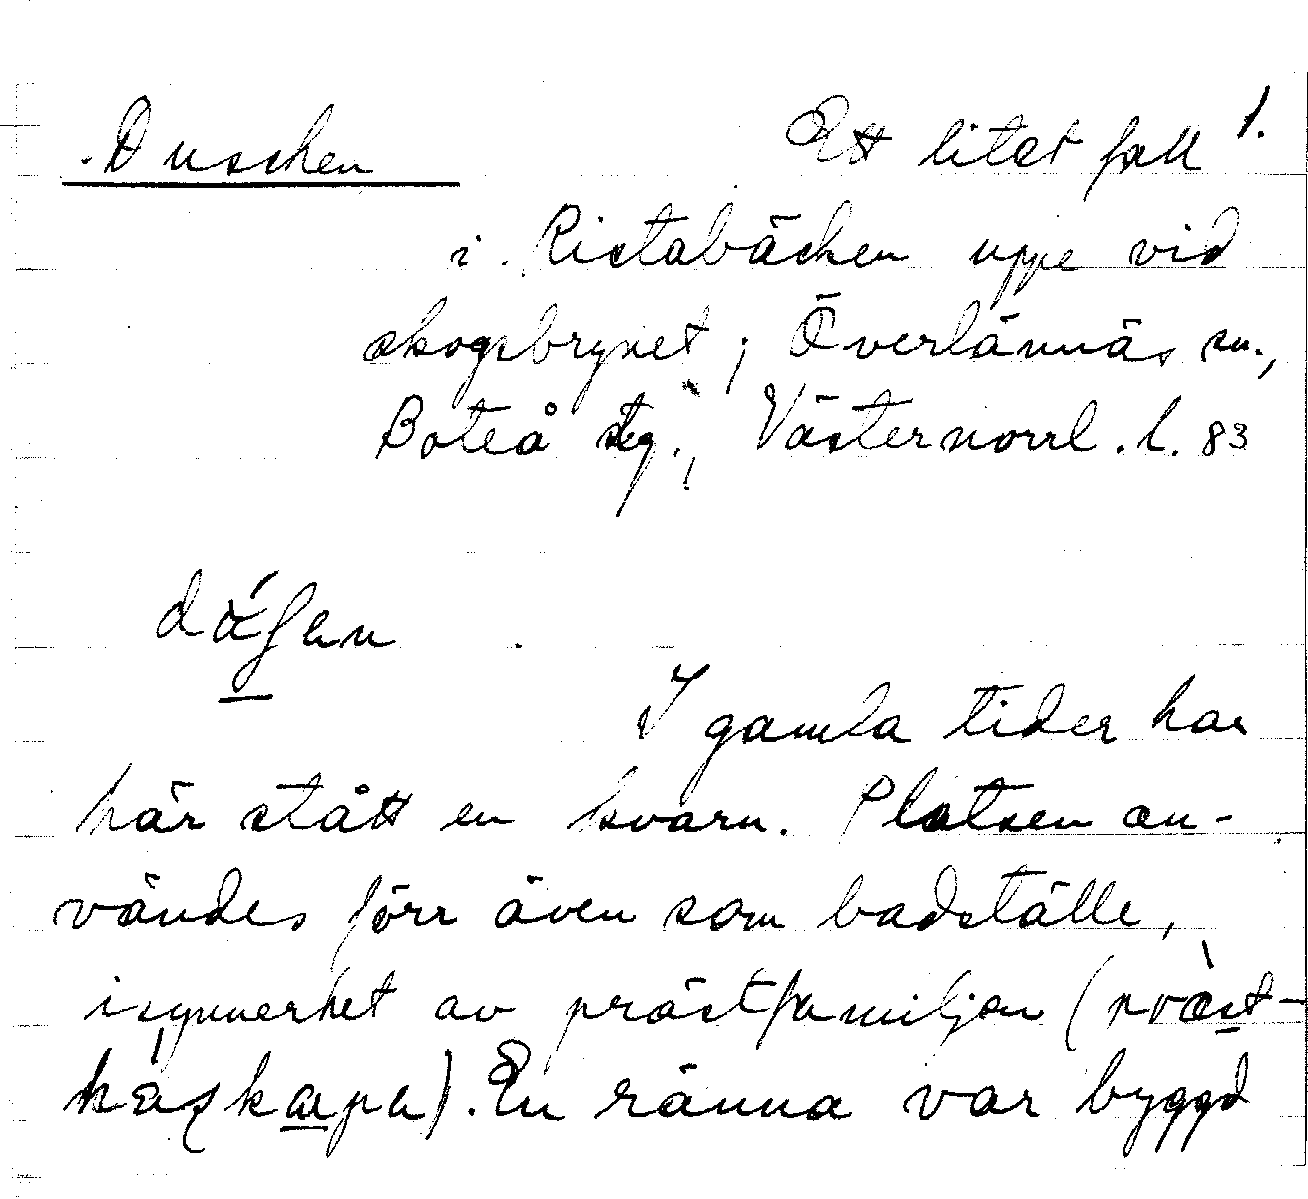 Duschen Ett litet fall 1.
i Ristabäcken uppe vid
skogsbrynet; Överlännäs sn.,
Boteå tg., Västernorrl. l. 83
I gamla tider har
här stått en kvarn. Platsen an-
vändes förr även som badställe,
isynnerhet av prästfamiljen (
). En ränna var byggd